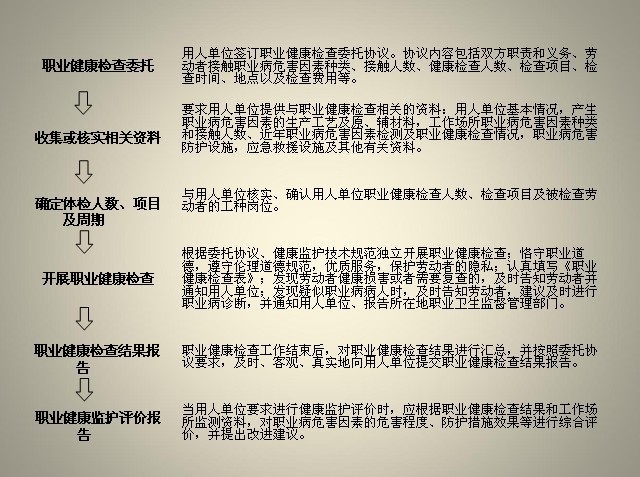 职业健康检查委托
用人单位签订职业健康检查委托协议。协议内容包括双方职责和义务、劳
动者接触职业病危害因素种类、接触人数、健康检查人数、检查项目、检
查时间、地点以及检查费用等。
收集或核实相关资料
要求用人单位提供与职业健康检查相关的资料：用人单位基本情况，产生
职业病危害因素的生产工艺及原、辅材料，工作场所职业病危害因素种类
和接触人数、近年职业病危害因素检测及职业健康检查情况，职业病危害
防护设施，应急救援设施及其他有关资料。
确定体检人数、项目
及周期
与用人单位核实、确认用人单位职业健康检查人数、检查项目及被检查劳
动者的工种岗位。
开展职业健康检查
根据委托协议、健康监护技术规范独立开展职业健康检查；恪守职业道
德，遵守伦理道德规范，优质服务，保护劳动者的隐私；认真填写《职业
健康检查表》；发现劳动者健康损害或者需要复查的，及时告知劳动者并
通知用人单位；发现疑似职业病病人时，及时告知劳动者，建议及时进行
职业病诊断，并通知用人单位、报告所在地职业卫生监督管理部门。
职业健康检查结果报
告
职业健康检查工作结束后，对职业健康检查结果进行汇总，并按照委托协
议要求，及时、客观、真实地向用人单位提交职业健康检查结果报告。
职业健康监护评价报
告
当用人单位要求进行健康监护评价时，应根据职业健康检查结果和工作场
所监测资料，对职业病危害因素的危害程度、防护措施效果等进行综合评
价，并提出改进建议。